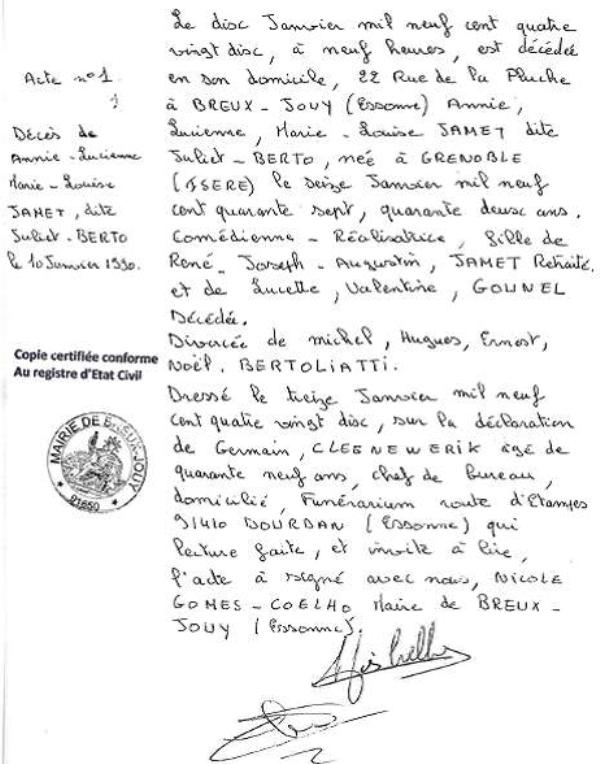 Acte n° 1
Décès de
Annie-Lucienne
Marie-Louise
JAMET, dite
Juliet-BERTO
le 10 Janvier 1990.
Copie certifiée conforme
Au registre d'Etat Civil
MAIRIE DE BREUX-JOUY
91650
Le dix Janvier mil neuf cent quatre
vingt dix, à neuf heures, est décédée
en son domicile, 22 Rue de la Pluche
à BREUX-JOUY (Essonne) Annie,
Lucienne, Marie-Louise JAMET dite
Juliet-BERTO, née à GRENOBLE
(ISERE) le seize Janvier mil neuf
cent quarante sept, quarante deux ans.
Comédienne - Réalisatrice, fille de
René-Joseph-Augustin, JAMET Retraité.
et de Lucette, Valentine, GOUNEL
Décédée.
Divorcée de michel, Hugues, Ernest,
Noël. BERTOLIATTI.
Dressé le treize Janvier mil neuf
cent quatre vingt dix, sur la déclaration
de Germain, CLEENEWERIK âgé de
quarante neuf ans, chef de bureau,
domicilié, Funérarium route d'Etampes
91410 DOURDAN (Essonne) qui
lecture faite, et invité à lire,
l'acte à signé avec nous, NICOLE
GOMES-COELHO Maire de BREUX-
JOUY (Essonne).